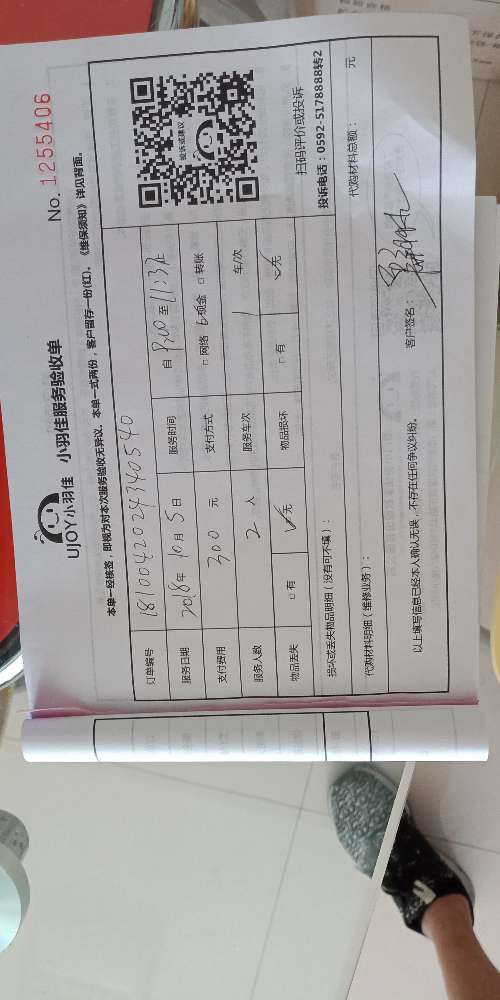 No. 1255406
UJOY小羽佳 小羽佳服务验收单
本单一经核签，即视为对本次服务验收无异议。本单一式两份，客户留存一份(红)。《维保须知》详见背面。
订单编号 1810042024340540
服务日期 2018年 10月 5日 服务时间 自 至 11:33
支付费用 300 元 支付方式 □ 网络 ☑现金 □ 转账
服务人数 2 人 服务车次 1 车/次
物品丢失 □ 有 ☑无 物品损坏 □ 有 ☑无
投诉或建议
扫码评价或投诉
投诉电话：0592-5178888转2
损坏或丢失物品明细（没有可不填）：
代购材料明细（维修业务）： 代购材料总额： 元
以上填写信息已经本人确认无误，不存在任何争议纠纷。 客户签名：